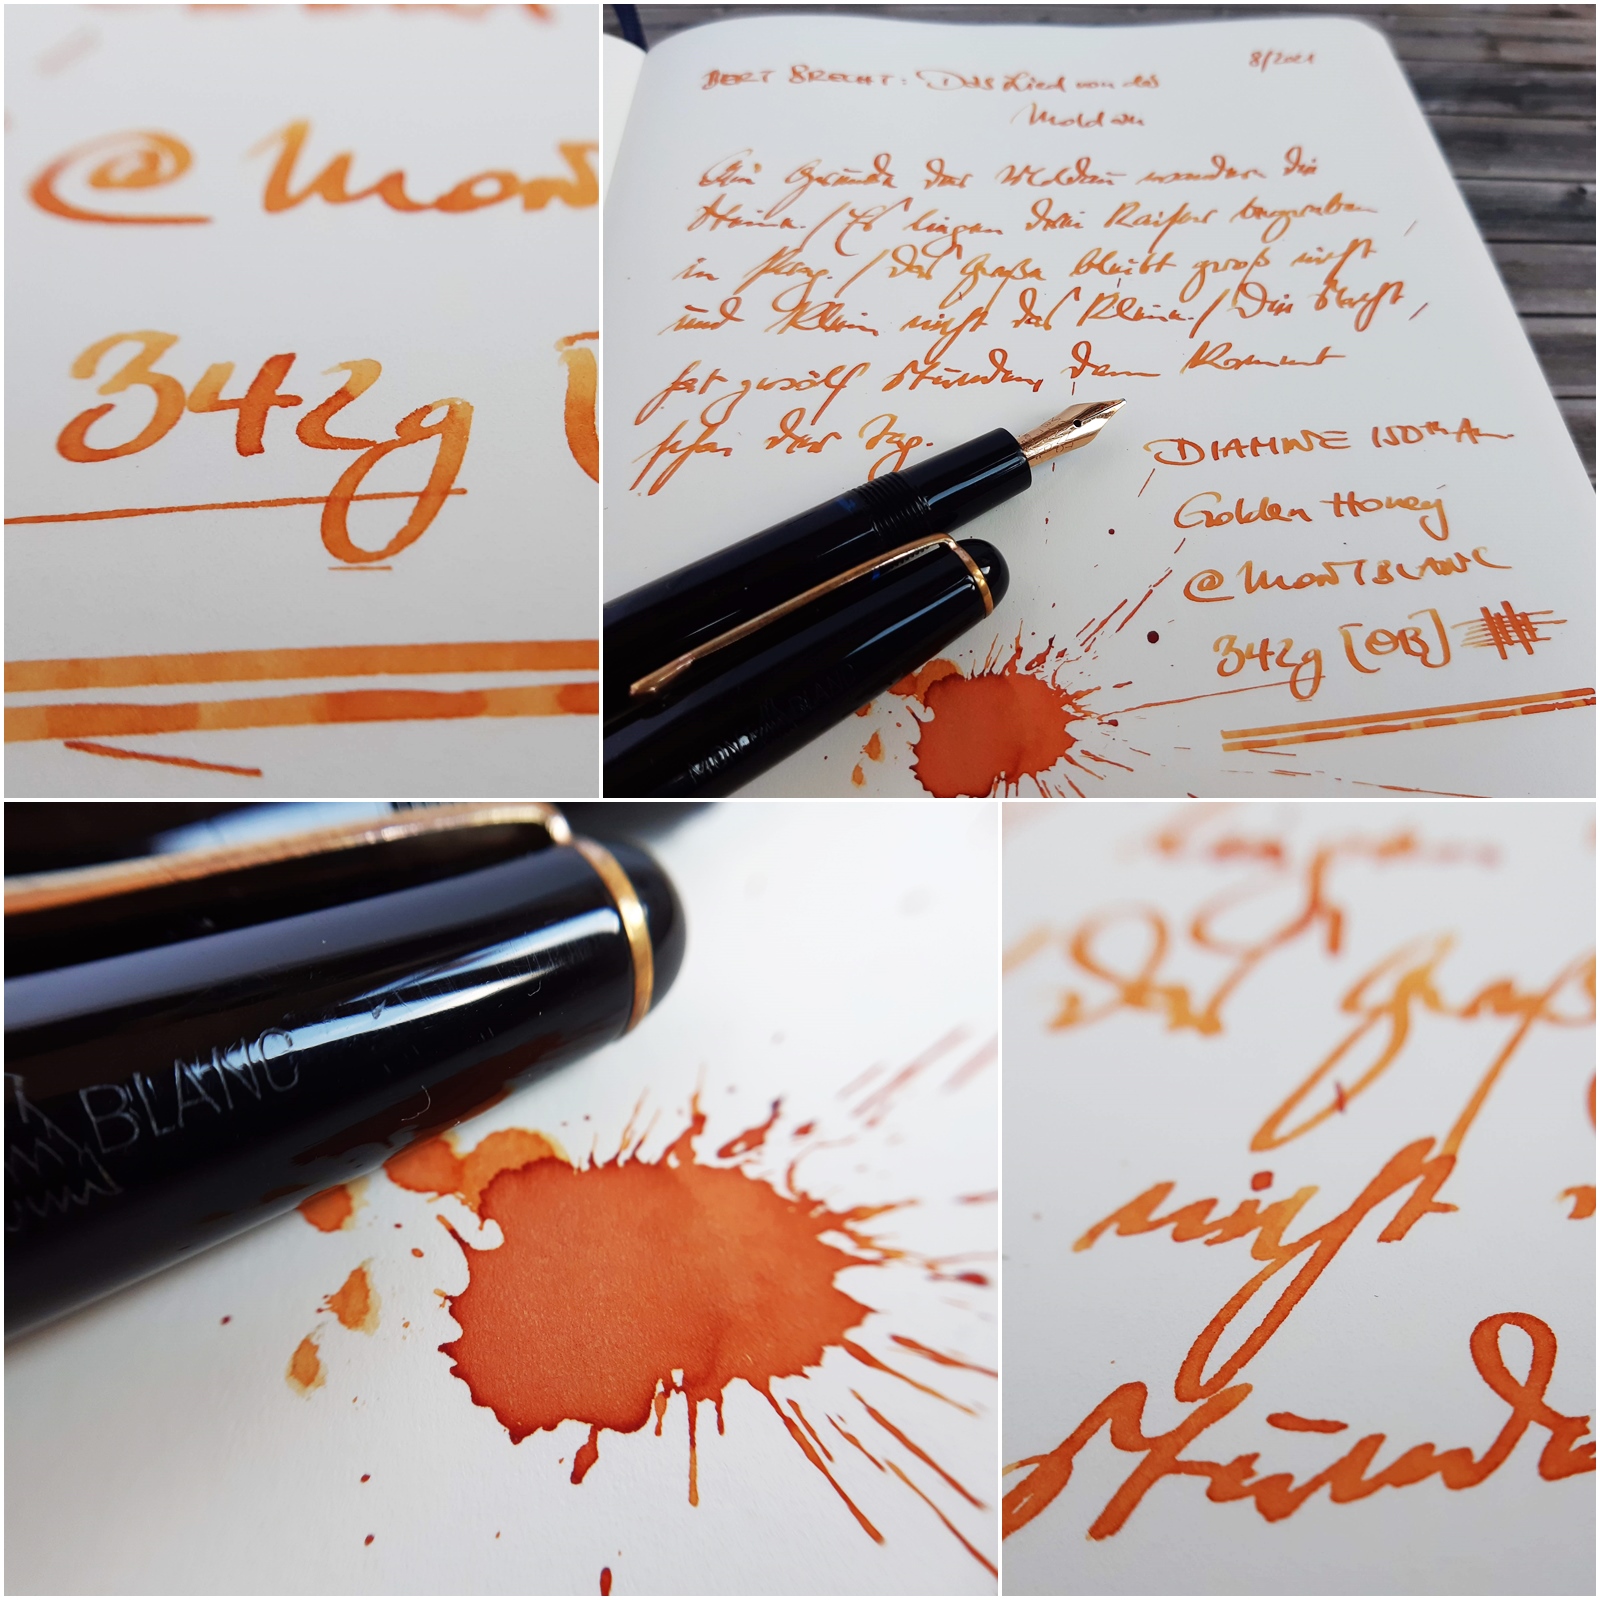 @ MONT
342g
8/2021
BERT BRECHT: Das Lied von der
Moldau
Am Grunde der Moldau wandern die
Steine. / Es liegen drei Kaiser begraben
in Prag. / Das Große bleibt groß nicht
und klein nicht das Kleine. / Die Nacht,
hat zwölf Stunden, dann kommt
schon der Tag.
DIAMINE 150th An.
Golden Honey
@ MONTBLANC
342g [OB]
BLANC
Das Große
nicht
Stunde